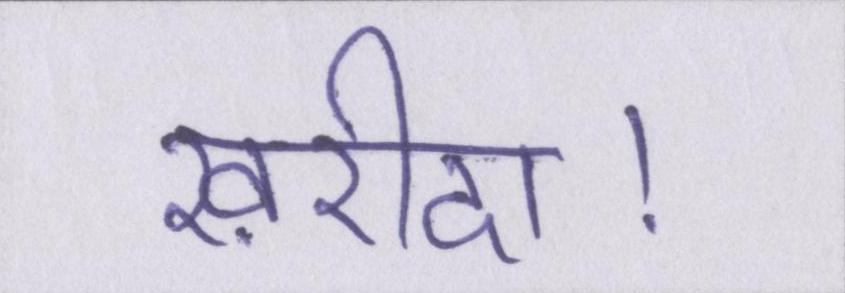 ख़रीदा!